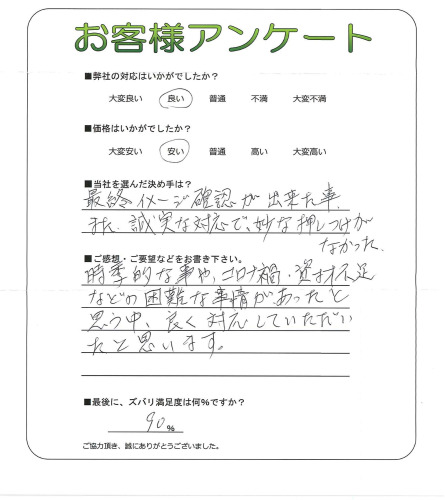 お客様アンケート
■弊社の対応はいかがでしたか？
大変良い　良い　普通　不満　大変不満
■価格はいかがでしたか？
大変安い　安い　普通　高い　大変高い
■当社を選んだ決め手は？
最終イメージ確認が出来た事。
また、誠実な対応で、妙な押しつけが
なかった。
■ご感想・ご要望などをお書き下さい。
時季的な事や、コロナ禍・資材不足
などの困難な事情があったと
思う中、良く対応していただい
たと思います。
■最後に、ズバリ満足度は何%ですか？
90%
ご協力頂き、誠にありがとうございました。